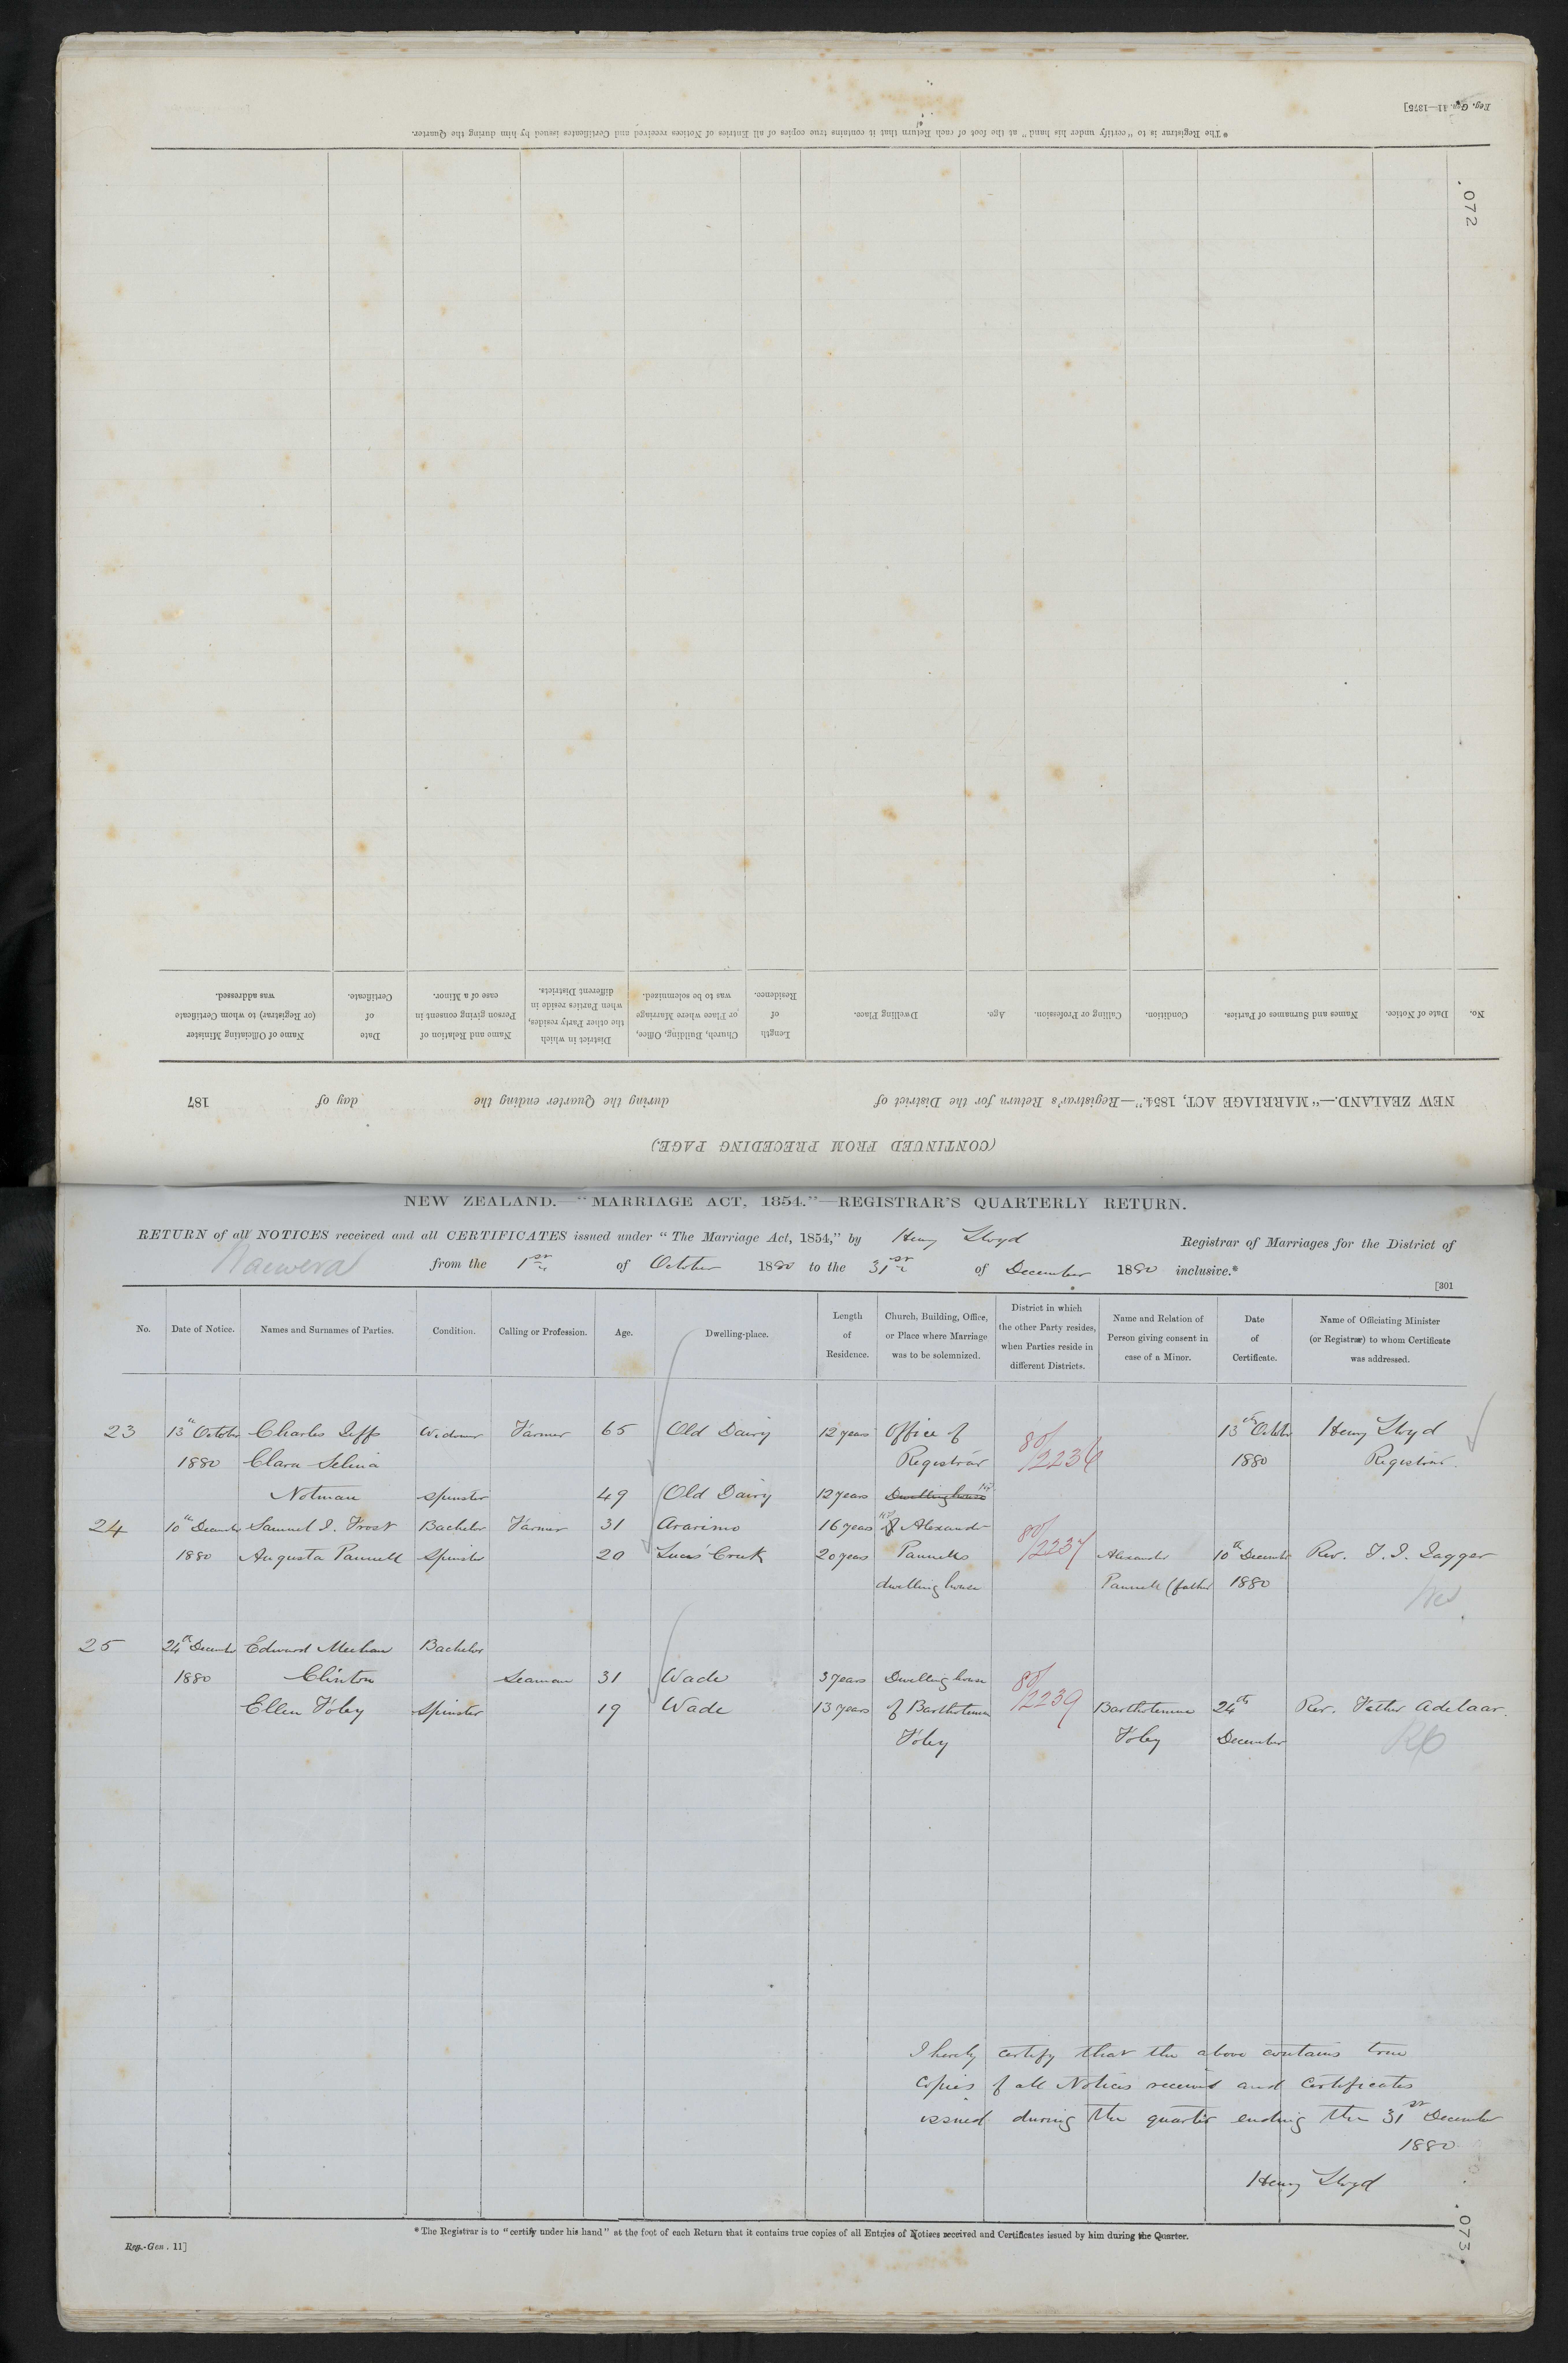 Reg. Gen. 11—1875]
*The Registrar is to "certify under his hand" at the foot of each Return that it contains true copies of all Entries of Notices received and Certificates issued by him during the Quarter.
072
(CONTINUED FROM PRECEDING PAGE.)
NEW ZEALAND.—"MARRIAGE ACT, 1854."—Registrar's Return for the District of during the Quarter ending the day of 187
No.
Date of Notice.
Names and Surnames of Parties.
Condition.
Calling or Profession.
Age.
Dwelling Place.
Length
of
Residence.
Church, Building, Office,
or Place where Marriage
was to be solemnized.
District in which
the other Party resides,
when Parties reside in
different Districts.
Name and Relation of
Person giving consent in
case of a Minor.
Date
of
Certificate.
Name of Officiating Minister
(or Registrar) to whom Certificate
was addressed.
NEW ZEALAND.—"MARRIAGE ACT, 1854."—REGISTRAR'S QUARTERLY RETURN.
RETURN of all NOTICES received and all CERTIFICATES issued under "The Marriage Act, 1854," by Henry Lloyd Registrar of Marriages for the District of
from the 1st of October 1880 to the 31st of December 1880 inclusive.*
[301
No.
Date of Notice.
Names and Surnames of Parties.
Condition.
Calling or Profession.
Age.
Dwelling-place.
Length
of
Residence.
Church, Building, Office,
or Place where Marriage
was to be solemnized.
District in which
the other Party resides,
when Parties reside in
different Districts.
Name and Relation of
Person giving consent in
case of a Minor.
Date
of
Certificate.
Name of Officiating Minister
(or Registrar) to whom Certificate
was addressed.
23 13th October Charles Jeffs Widower Farmer 65 Old Dairy 12 years Office of 80/ 13th October Henry Lloyd
1880 Clara Selina Registrar 2236 1880 Registrar.
Notman Spinster 49 Old Dairy 12 years Dwelling house
24 10th December Samuel I. Frost Bachelor Farmer 31 Ararimo 16 years of Alexander 80/
1880 Augusta Pannell Spinster 20 Lucas' Creek 20 years Pannells 2237 Alexander 10th December Rev. J. I. Jagger
dwelling house Pannell (father 1880
25 24th December Edward Meehan Bachelor
1880 Clinton Seaman 31 Wade 3 years Dwelling house 80/
Ellen Foley Spinster 19 Wade 13 years of Bartholemew 2239 Bartholemew 24th Rev. Father Adelaar.
Foley Foley December RC
I hereby certify that the above contains true
copies of all Notices received and Certificates
issued during the quarter ending the 31st December
1880
Henry Lloyd
*The Registrar is to "certify under his hand" at the foot of each Return that it contains true copies of all Entries of Notices received and Certificates issued by him during the Quarter.
Reg.-Gen. 11]
073